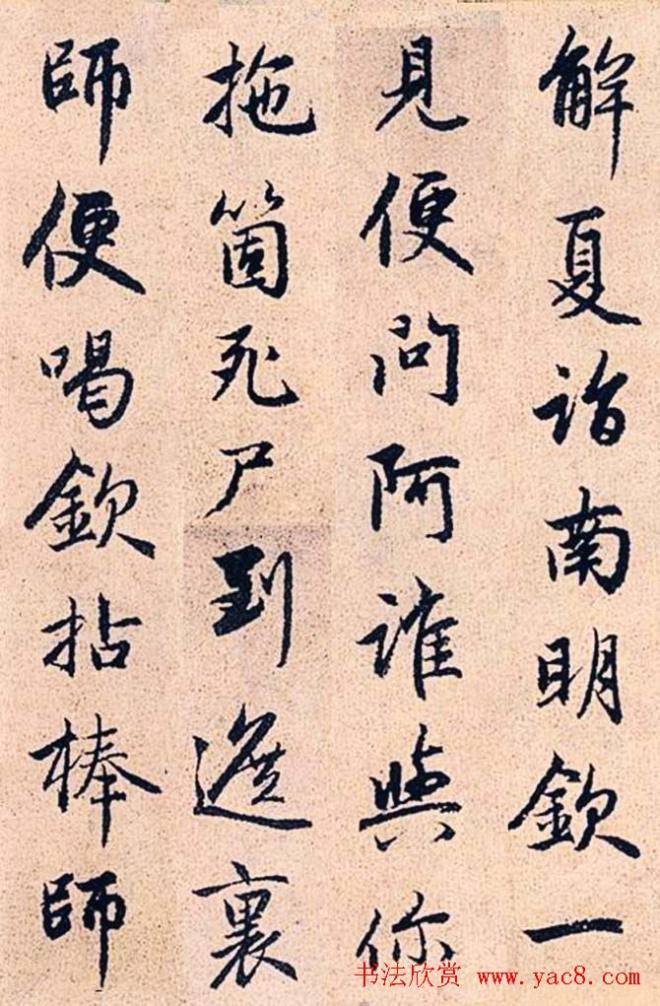 解夏詣南明欽一
見便問阿誰與你
拖箇死尸到遮裏
師便喝欽拈棒師
书法欣赏 www.yac8.com